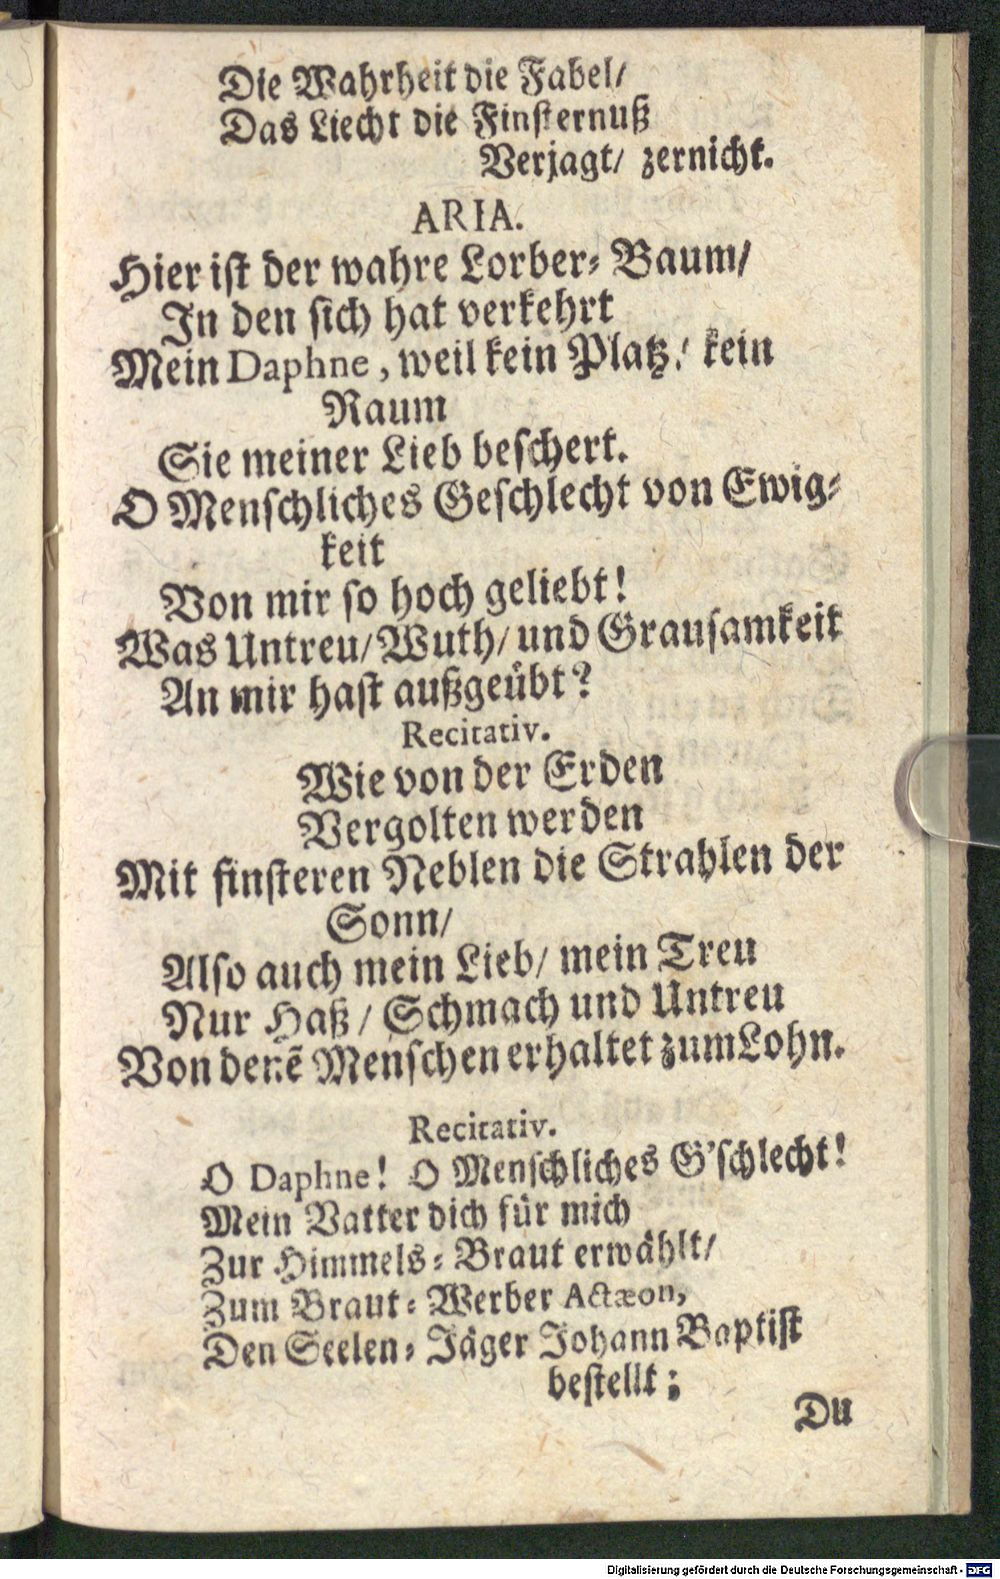 Die Wahrheit die Fabel/
Das Liecht die Finsternuß
Verjagt/ zernicht.
ARIA.
Hier ist der wahre Lorber-Baum/
In den sich hat verkehrt
Mein Daphne, weil kein Platz/ kein
Raum
Sie meiner Lieb beschert.
O Menschliches Geschlecht von Ewig-
keit
Von mir so hoch geliebt!
Was Untreu/ Wuth/ und Grausamkeit
An mir hast außgeübt?
Recitativ.
Wie von der Erden
Vergolten werden
Mit finsteren Neblen die Strahlen der
Sonn/
Also auch mein Lieb/ mein Treu
Nur Haß/ Schmach und Untreu
Von denē Menschen erhaltet zum Lohn.
Recitativ.
O Daphne! O Menschliches G'schlecht!
Mein Vatter dich für mich
Zur Himmels-Braut erwählt/
Zum Braut-Werber Actæon,
Den Seelen-Jäger Johann Baptist
bestellt;
Du
Digitalisierung gefördert durch die Deutsche Forschungsgemeinschaft - DFG